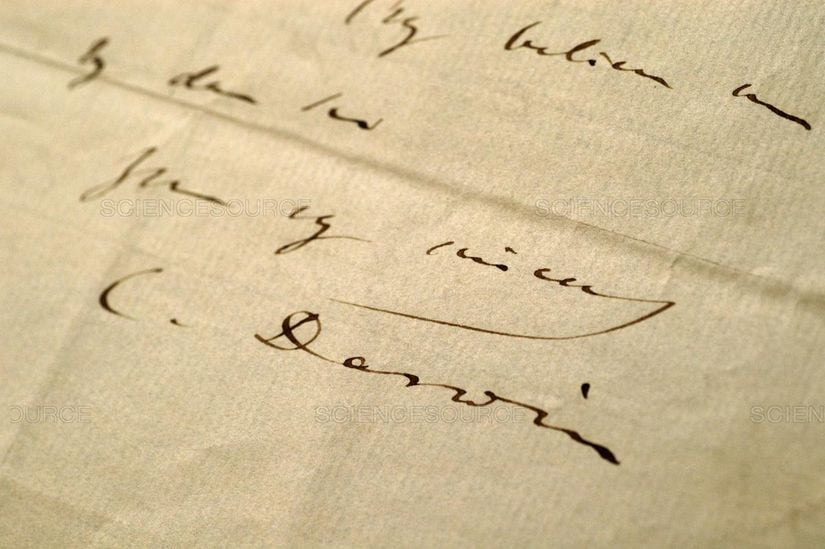 believe me
My dear Sir
Yours very sincerely
C. Darwin
SCIENCESOURCE SCIENCESOURCE
OURCE SCIENCESOURCE SCIEN